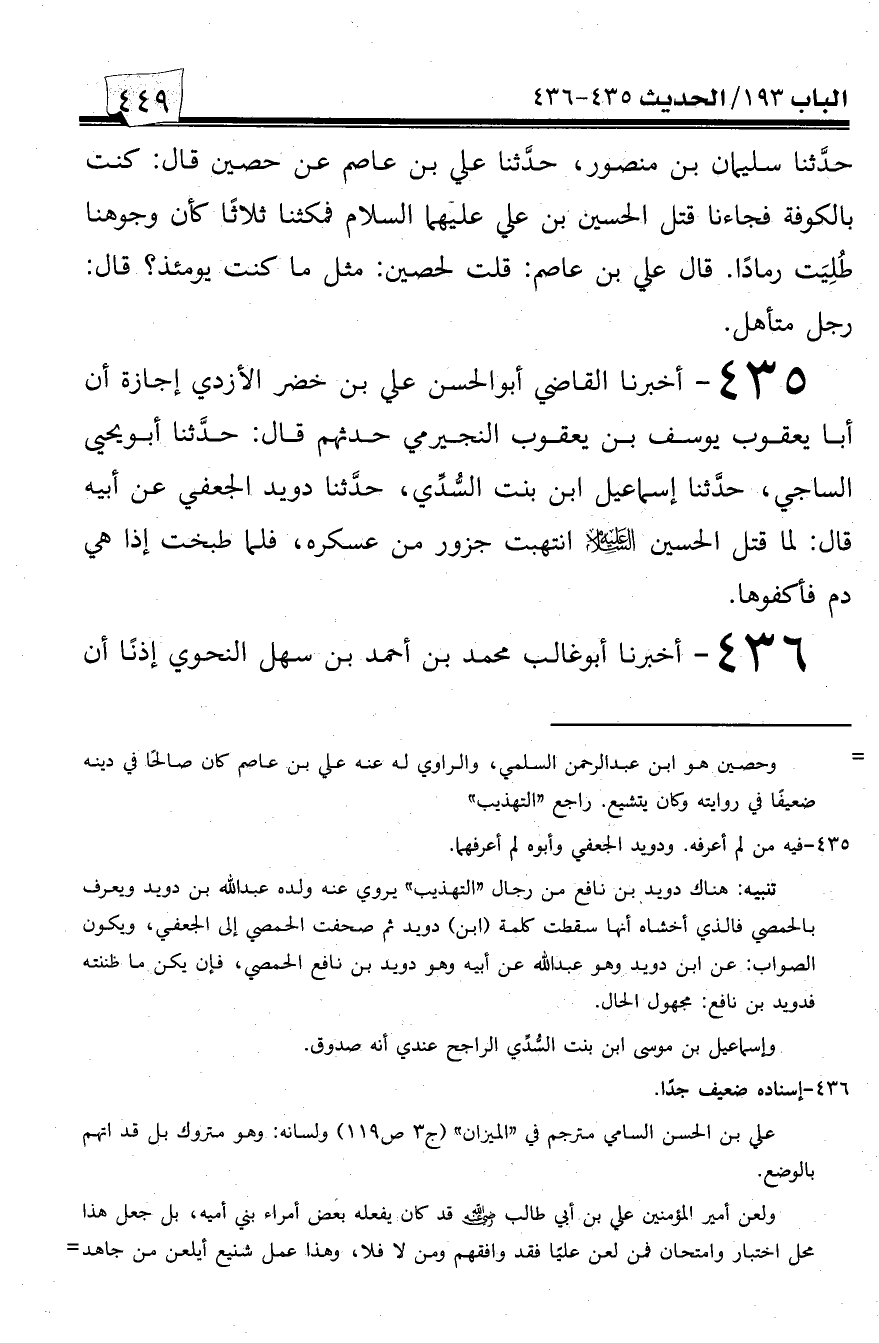 الباب ١٩٣/الحديث ٤٣٥-٤٣٦
٤٤٩
حدَّثنا سليمان بن منصور، حدَّثنا علي بن عاصم عن حصين قال: كنت
بالكوفة فجاءنا قتل الحسين بن علي عليهما السلام فمكثنا ثلاثًا كأن وجوهنا
طُلِيَت رمادًا. قال علي بن عاصم: قلت لحصين: مثل ما كنت يومئذ؟ قال:
رجل متأهل.
٤٣٥- أخبرنا القاضي أبوالحسن علي بن خضر الأزدي إجازة أن
أبا يعقوب يوسف بن يعقوب النجيرمي حدثهم قال: حدَّثنا أبويحيى
الساجي، حدَّثنا إسماعيل ابن بنت السُّدِّي، حدَّثنا دويد الجعفي عن أبيه
قال: لما قتل الحسين عليه السلام انتهبت جزور من عسكره، فلما طبخت إذا هي
دم فأكفوها.
٤٣٦- أخبرنا أبوغالب محمد بن أحمد بن سهل النحوي إذنًا أن
= وحصين هو ابن عبدالرحمن السلمي، والراوي له عنه علي بن عاصم كان صالحًا في دينه
ضعيفًا في روايته وكان يتشيع. راجع "التهذيب"
٤٣٥-فيه من لم أعرفه. ودويد الجعفي وأبوه لم أعرفهما.
تنبيه: هناك دويد بن نافع من رجال "التهذيب" يروي عنه ولده عبدالله بن دويد ويعرف
بالحمصي فالذي أخشاه أنها سقطت كلمة (ابن) دويد ثم صحفت الحمصي إلى الجعفي، ويكون
الصواب: عن ابن دويد وهو عبدالله عن أبيه وهو دويد بن نافع الحمصي، فإن يكن ما ظننته
فدويد بن نافع: مجهول الحال.
وإسماعيل بن موسى ابن بنت السُّدِّي الراجح عندي أنه صدوق.
٤٣٦-إسناده ضعيف جدًا.
علي بن الحسن السامي مترجم في "الميزان" (ج٣ ص١١٩) ولسانه: وهو متروك بل قد اتهم
بالوضع.
ولعن أمير المؤمنين علي بن أبي طالب رضي الله عنه قد كان يفعله بعض أمراء بني أميه، بل جعل هذا
محل اختبار وامتحان فمن لعن عليًا فقد وافقهم ومن لا فلا، وهذا عمل شنيع أيلعن من جاهد =